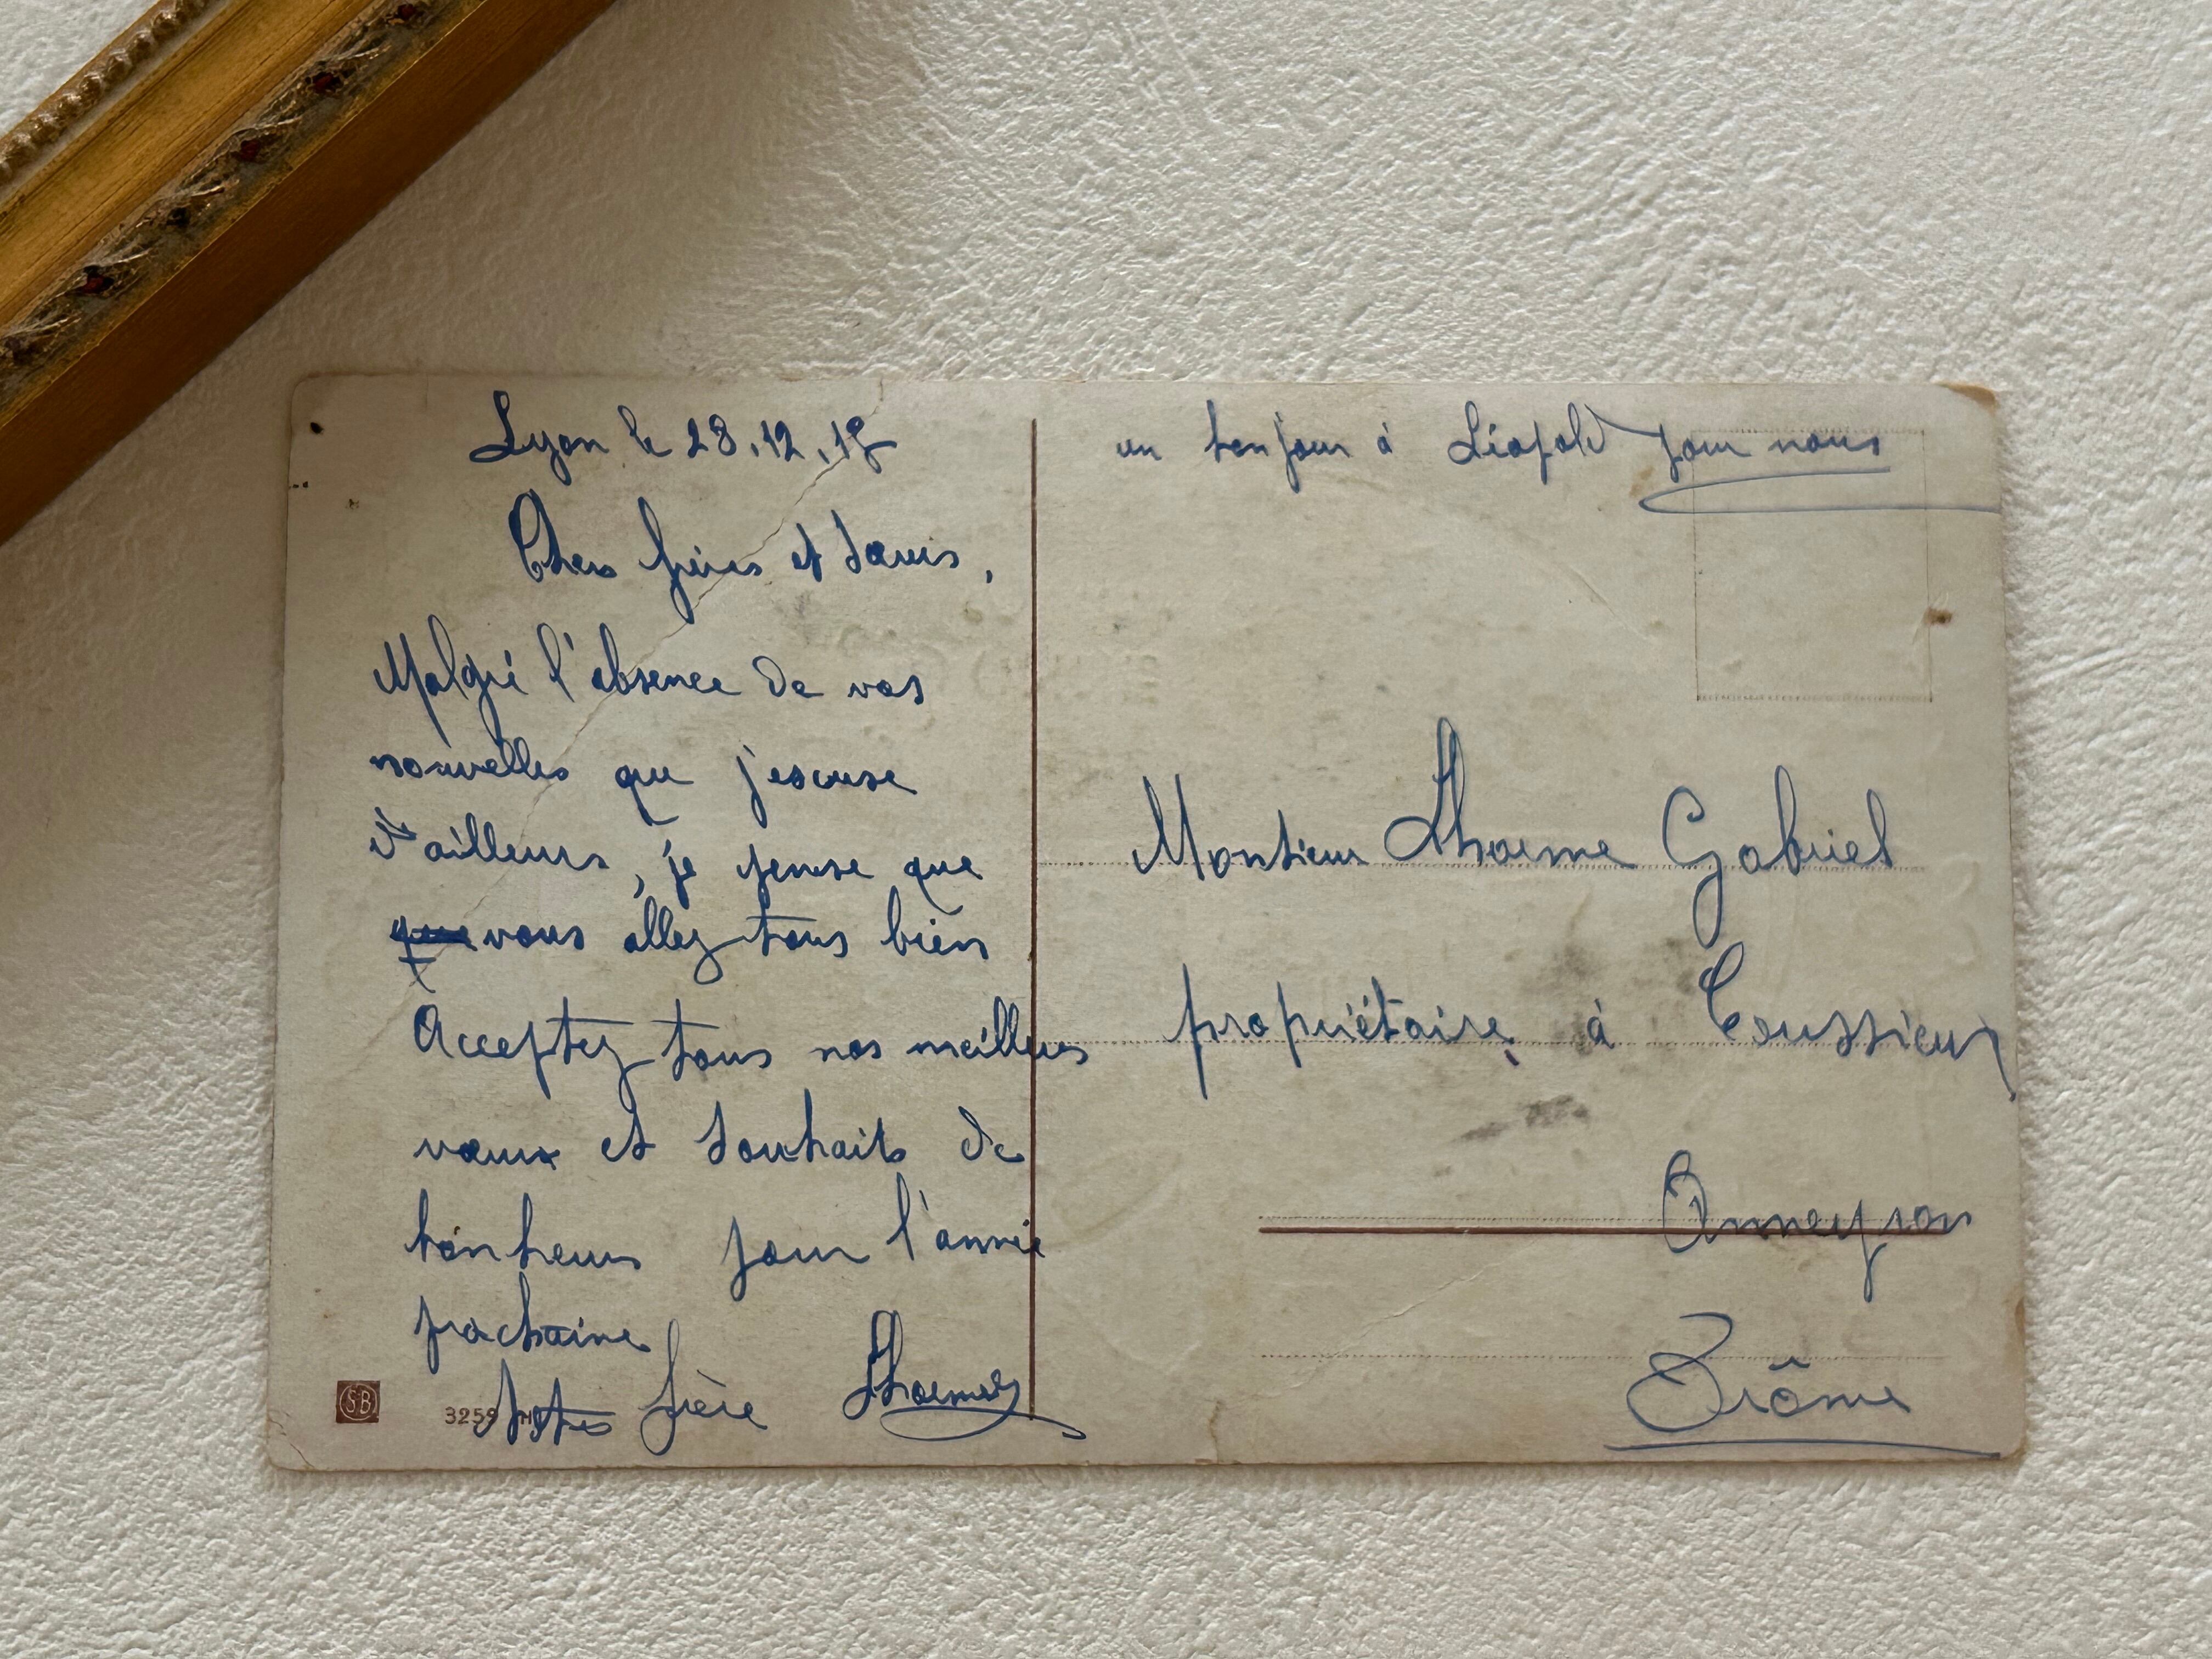 Lyon le 28.12.18
Chers frères et sœurs,
Malgré l'absence de vos
nouvelles que j'escuse
d'ailleurs, je pense que
que vous allez tous bien
Acceptez tous nos meilleurs
vœux et souhaits de
bonheur pour l'année
prochaine
frère
SB
3259
un bonjour à Léopold pour nous
Monsieur Lhoeme Gabriel
propriétaire à Coussieux
Anneyron
Drôme